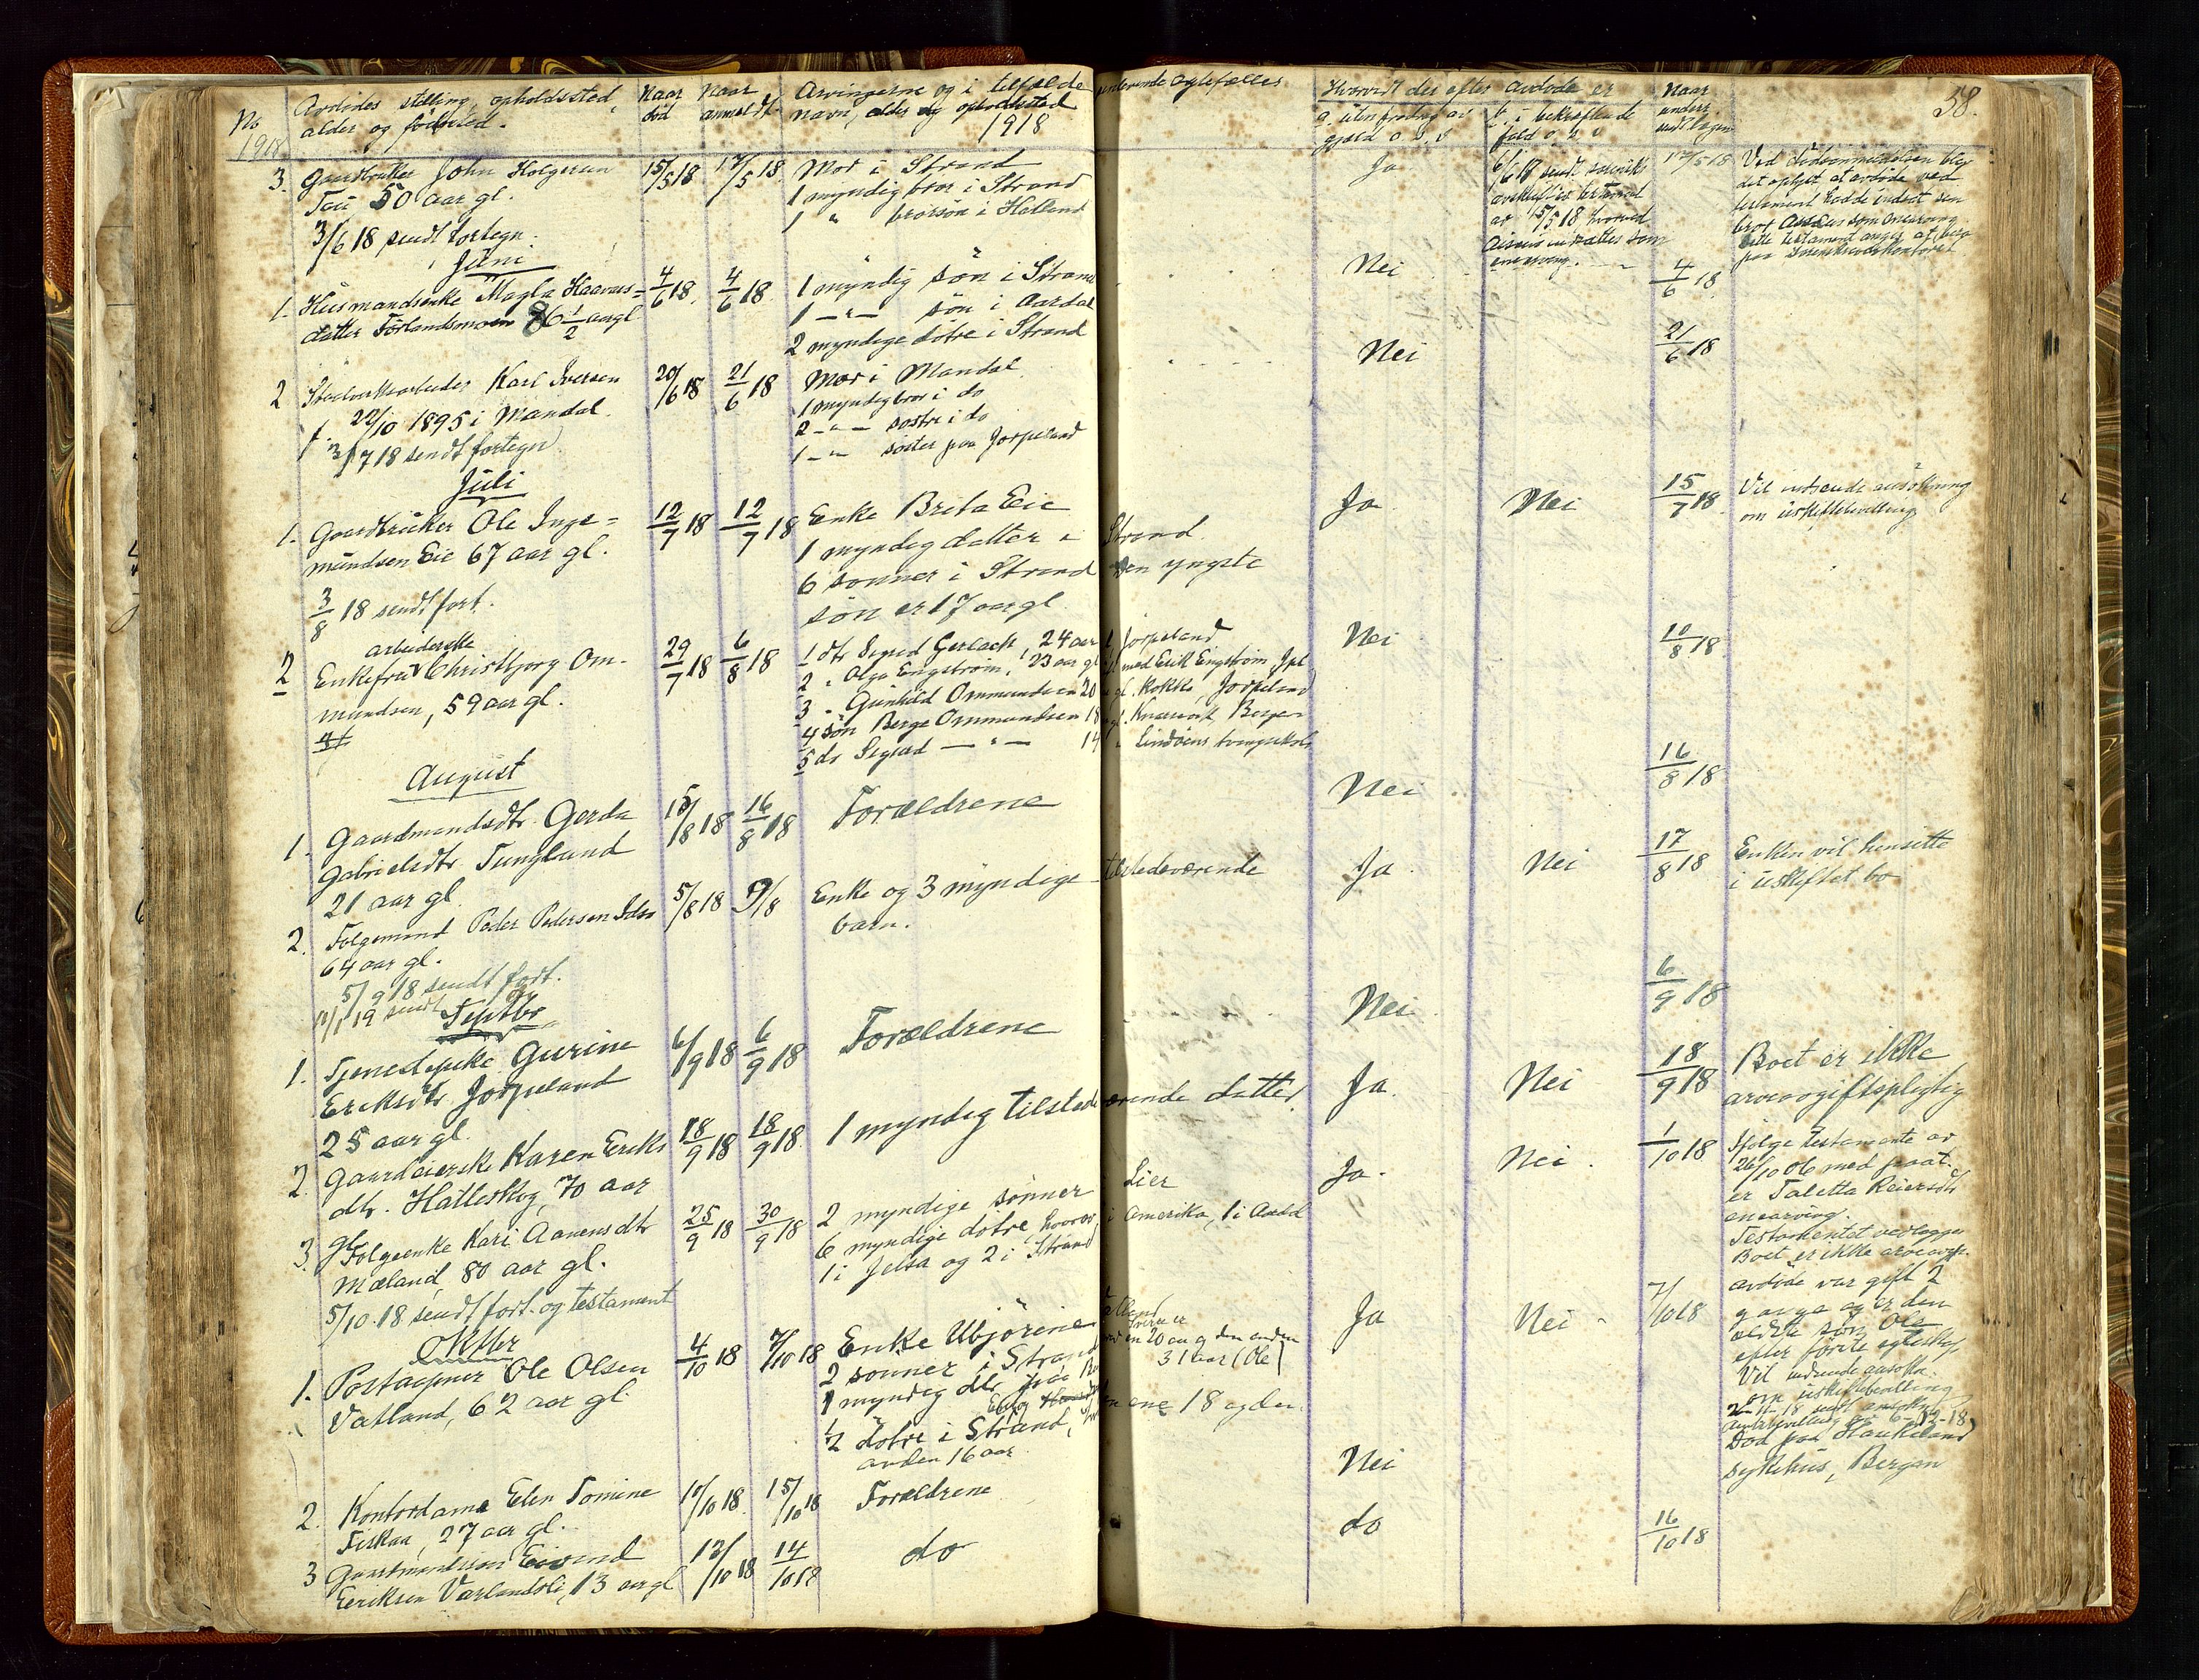 No
1918
Avdødes stilling, opholdssted,
alder og fødested.
Naar
død
Naar
anmeldt.
Arvingerne og i tilfælde
navn, alder og opholdssted
1918
Hvorvidt der efter avdøde er
gjæld o. s. v
i bekræftende
fald o. s. v
Naar
58.
3. Gaardbruker John Holgersen
Tau 50 aar gl.
3/6 18 sendt fortegn.
15/5 18
17/5 18.
Mor i Strand
1 myndig bror i Strand
1 " brorsøn i Høiland
Ja.
av 15/5 18 hvorved
enearving.
17/5 18
Ved dødsanmeldelsen blev
det oplyst at avdøde ved
testament hadde indsat sin
Juni
1. Husmandsenke Magla Haavars=
datter Førlandsmoen 86 1/2 aar gl.
4/6 18.
4/6 18.
1 myndig søn i Strand
1 -"- søn i Aardal
2 myndige døtre i Strand
Nei
4/6 18
2 Staalverksarbeider Karl Iversen
f. 22/10 1895 i Mandal.
3/7 18 sendt fortegn
20/6 18
21/6 18
Mor i Mandal
1 myndig bror i do
2 -"- søstre i do
1 -"- søster paa Jørpeland
Nei
21/6 18
Juli
1. Gaardbruker Ole Inge=
mundsen Eie 67 aar gl.
3/8 18 sendt fort.
12/7 18
12/7 18
Enke Brita Eie
1 myndig datter i Strand.
6 sønner i Strand Den yngste
søn er 17 aar gl.
Ja
Nei
15/7 18.
Vil indsende ansøkning
om uskiftebevilling
arbeiderske
2 Enkefru Christbjørg Om-
mundsen, 59 aar gl.
29/7 18
6/8 18
1 dtr Signed Gerlach, 24 aar Jørpeland
2 " Olga Engstrøm, 23 aar gl. med Erik Engstrøm, Jpl.
3 " Gunhild Ommundsen 20 gl. kokke, Jørpeland
4 søn Berge Ommundsen 18 gl. Bergen
5 dr Sigred -"- 14 " Lindøens tvangsskole
Nei
10/8 18.
August
1. Gaardmandsdtr. Gerda
Gabrielsdtr Tungland
21 aar gl.
15/8 18
16/8 18
Forældrene
Nei
16/8 18
2. Følgemand Peder Pedersen Idsø
64 aar gl.
5/9 18 sendt fort.
5/8 18
9/8
Enke og 3 myndige tilstedeværende
barn.
Ja
Nei
17/8 18
Enken vil hensitte
i uskiftet bo
Septbr
1. Tjenestepike Gurine
Eriksdtr Jørpeland
25 aar gl.
6/9 18
6/9 18
Forældrene
Nei
6/9 18
2. Gaardeierske Karen Eriks
dtr. Hatleskog, 70 aar
gl.
18/9 18
18/9 18.
1 myndig tilstedeværende datter.
Ja.
Nei
18/9 18
Boet er ikke
arveavgiftspligtig
3. Følgeenke Kari Aanensdtr
Mæland, 80 aar gl.
5/10. 18 sendt fort. og testament
25/9 18
30/9 18
2 myndige sønner Lier
6 myndige døtre, hvorav i Amerika, 1 i Aardal
1 i Jelsa og 2 i Strand
Ja.
Nei.
1/10 18
Ifølge testamente av
26/10 06 med paat.
er Taletta Reiersdtr
enearving.
Testamentet vedlægges
Boet er ikke arveavgpl.
Oktbr
1. Postaapner Ole Olsen
Vatland, 62 aar gl.
4/10 18
7/10 18
Enke Ubjørine Vatland
2 sønner i Strand en 20 aar og den anden
31 aar (Ole)
1 myndig dtr
2 døtre i Strand, den ene 18 og den
anden 16 aar
Ja
Nei
7/10 18
avdøde var gift 2
gange og er den
ældste søn Ole
efter første egteskap.
Vil indsende ansøkn.
om uskiftebevilling
2. Kontordame Elen Tomine
Fiskaa, 27 aar gl.
10/10 18.
15/10 18
Forældrene
Nei
Død paa Haukeland
sykehus, Bergen
3 Gaardmandssøn Eivind
Eeriksen Varlandsli, 13 aar gl
12/10 18
14/10 18
do
do
16/10 18